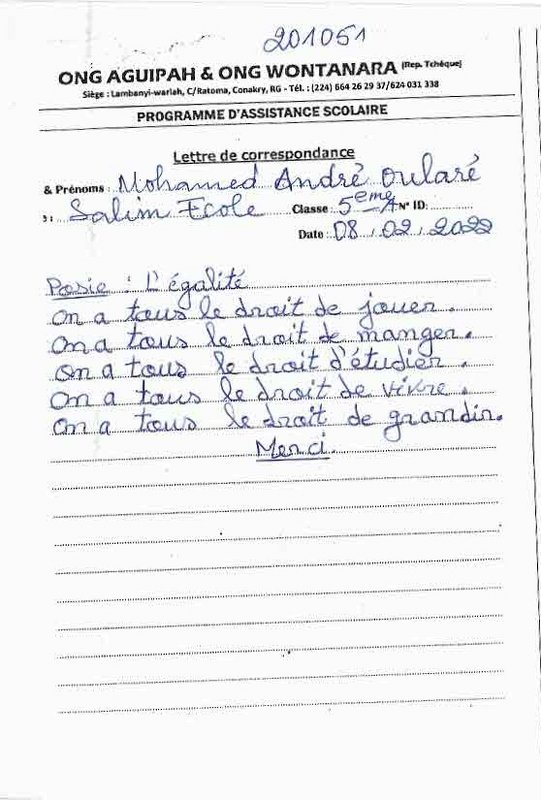 201051
ONG AGUIPAH & ONG WONTANARA (Rep. Tchéque)
Siège : Lambanyi-wariah, C/Ratoma, Conakry, RG - Tél. : (224) 664 26 29 37/624 031 338
PROGRAMME D'ASSISTANCE SCOLAIRE
Lettre de correspondance
& Prénoms : Mohamed André Oularé
: Salim Ecole Classe : 5eme A N° ID:
Date : 08.02.2022
Posie : L'égalité
On a tous le droit de jouer.
On a tous le droit de manger.
On a tous le droit d'étudier.
On a tous le droit de vivre.
On a tous le droit de grandir.
Merci.